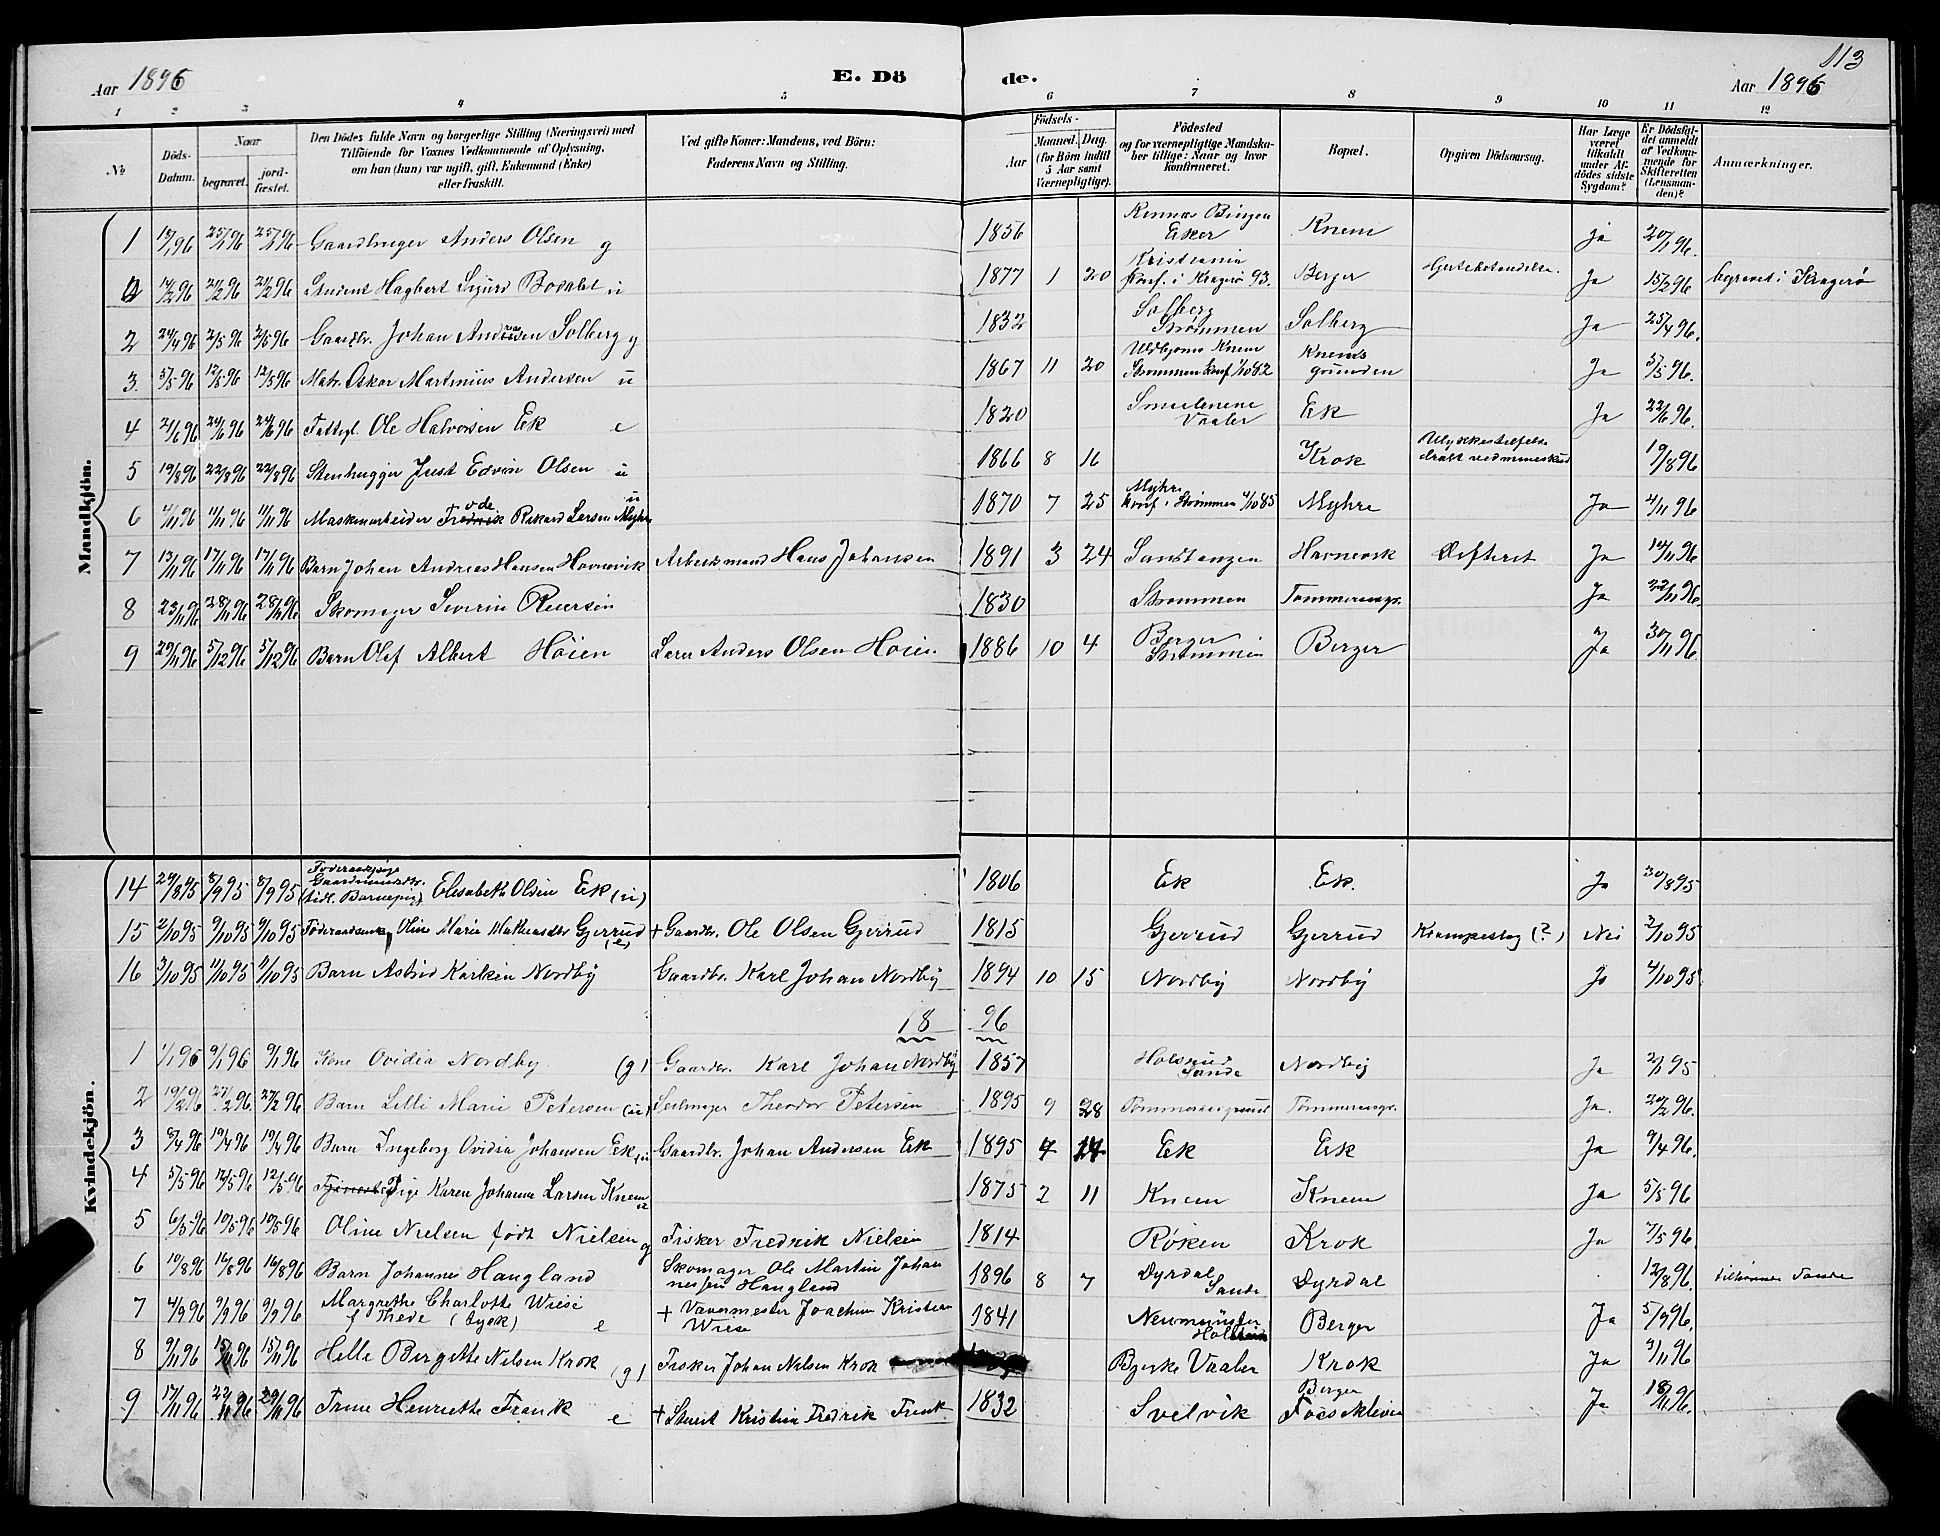 113
Aar 1896
E. Döde.
Aar 1896
1 2 3 4 5 6 7 8 9 10 11 12
№
Döds-Datum.
Naar
begravet.
jord-fæstet.
Den Dödes fulde Navn og borgerlige Stilling (Næringsvei) med
Tilföiende for Voxnes Vedkommende af Oplysning,
om han (hun) var ugift, gift, Enkemand (Enke)
eller fraskilt.
Ved gifte Koner: Mandens, ved Börn:
Faderens Navn og Stilling.
Födsels-
Aar
Maaned. Dag.
(for Börn indtil
5 Aar samt
Værnepligtige).
Födested
og for værnepligtige Mandska-
ber tillige: Naar og hvor
konfirmeret.
Bopæl.
Opgiven Dödsaarsag.
Har Læge
været
tilkaldt
under Af-
dödes sidste
Sygdom?
Er Dödsfal-
det anmeldt
af Vedkom-
mende for
Skifteretten
(Lensman-
den)?
Anmærkninger.
Mandkjön.
1 19/1 96 25/1 96 25/1 96 Gaardbruger Anders Olsen g 1856 Bingen Eker Knem ja 20/1 96.
14/2 96 21/2 96 21/2 96 Student Hagbart Sigurd Bodahl u 1877 1 20 Kristiania Konf. i Kragerø 93. Berger Hjertebetændelse. Ja 15/2 96 begravet i Kragerø
2 24/4 96 2/5 96 2/5 96 Gaardbr. Johan Andersen Solberg g 1832 Solberg Strømmen Solberg Ja 25/4 96.
3. 5/5 96 12/5 96 12/5 96 Matr. Oskar Martinius Andersen u 1867 11 20 Knem Strømmen konf 1/10 82 Knems grunden Ja 5/5 96.
4 21/6 96 24/6 96 24/6 96 Fattigl. Ole Halvorsen Ek e 1820 Smaalenene Vaaler Ek Ja 22/6 96.
5 19/8 96 22/8 96 22/8 96 Stenhugger Just Edvin Olsen u 1866 8 16 Krok Ulykkestilfelde 19/8 96
6 4/11 96 11/11 96 11/11 96 Maskinarbeider Rikard Larsen Myhre u 1870 7 25 Myhre konf i Strømmen 4/10 85 Myhre Ja 4/11 96
7 13/11 96 17/11 96 17/11 96 Barn Johan Andreas Hansen Havnevik Arbeidsmand Hans Johansen 1891 3 24 Sandtangen Havnevik Difterit Ja 14/11 96
8 23/11 96 28/11 96 28/11 96 Skomager Severin Reiersen 1830 Strømmen Tømmeraasgr. Ja 23/11 96.
9 29/11 96 5/12 96 5/12 96 Barn Olaf Albert Höien Lærer Anders Olsen Höien 1886 10 4 Berger Strømmen Berger Ja 30/11 96.
Kvindekjön.
14 29/8 95 8/9 95 8/9 95 Føderaadspige (tidl. Barnepig) Elisabeth Olsen Ek (u) 1806 Ek Ek. Ja 30/8 95
15 2/10 95 9/10 95 9/10 95 Føderaadsenke Oline Marie Mathiasdtr Gjerrud (e) + Gaardbr. Ole Olsen Gjerrud 1815 Gjerrud Gjerrud Krampeslag (?) Nei 3/10 95
16 3/10 95 11/10 95 11/10 95 Barn Astrid Karlsen Nordby Gaardbr. Karl Johan Nordby 1894 10 15 Nordby Nordby Ja 4/10 95
18 96
1 1/1 96 9/1 96 9/1 96 Kone Ovidia Nordby (g) Gaardbr. Karl Johan Nordby 1857 Holsrud Sande Nordby Ja 2/1 95
2 19/2 96 27/2 96 27/2 96 Barn Lilli Marie Petersen (u) Seilmager Theodor Petersen 1895 9 28 Tømmeraasgrund Tømmeraasgr. Ja. 20/2 96.
3 8/4 96 19/4 96 19/4 96 Barn Ingeborg Ovidia Johansen Ek u Gaardbr. Johan Andersen Ek 1895 4 Ek Ek Ja 9/4 96.
4 5/5 96 12/5 96 12/5 96 Pige Karen Johanne Larsen Knem u 1875 2 11 Knem Knem Ja 5/5 96
5 6/5 96 10/5 96 10/5 96 Oline Nielsen født Nielsen g Fisker Fredrik Nielsen 1814 Røken Krok Ja 7/5 96.
6 10/8 96 16/8 96 16/8 96 Barn Johannes Haugland Skomager Ole Martin Johannessen Haugland 1896 8 7 Dyrdal Sande Dyrdal 12/8 96. tilhørende Sande
7 4/9 96 9/9 96 9/9 96 Margrethe Charlotte Wiese f Thede (tysk) e + Vævermester Joachim Kristian Wiese 1841 Neumünster Holstein Berger Ja 5/9 96.
8 9/11 96 15/11 96 15/11 96 Helle Bergitte Nilsen Krok (g) Fisker Johan Nilsen Krok Bjerke Vaaler Krok Ja 9/11 96
9 17/11 96 22/11 96 29/11 96 Trine Henriette Frank e + Kristian Fredrik Frank 1832 Svelvik Berger Fosseklevn Ja 18/11 96.